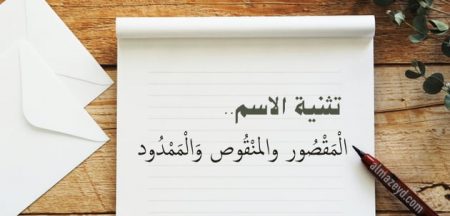 تثنية الاسم..
الْمَقْصُور والمنْقُوص وَالْمَمْدُود
almazeyd.com